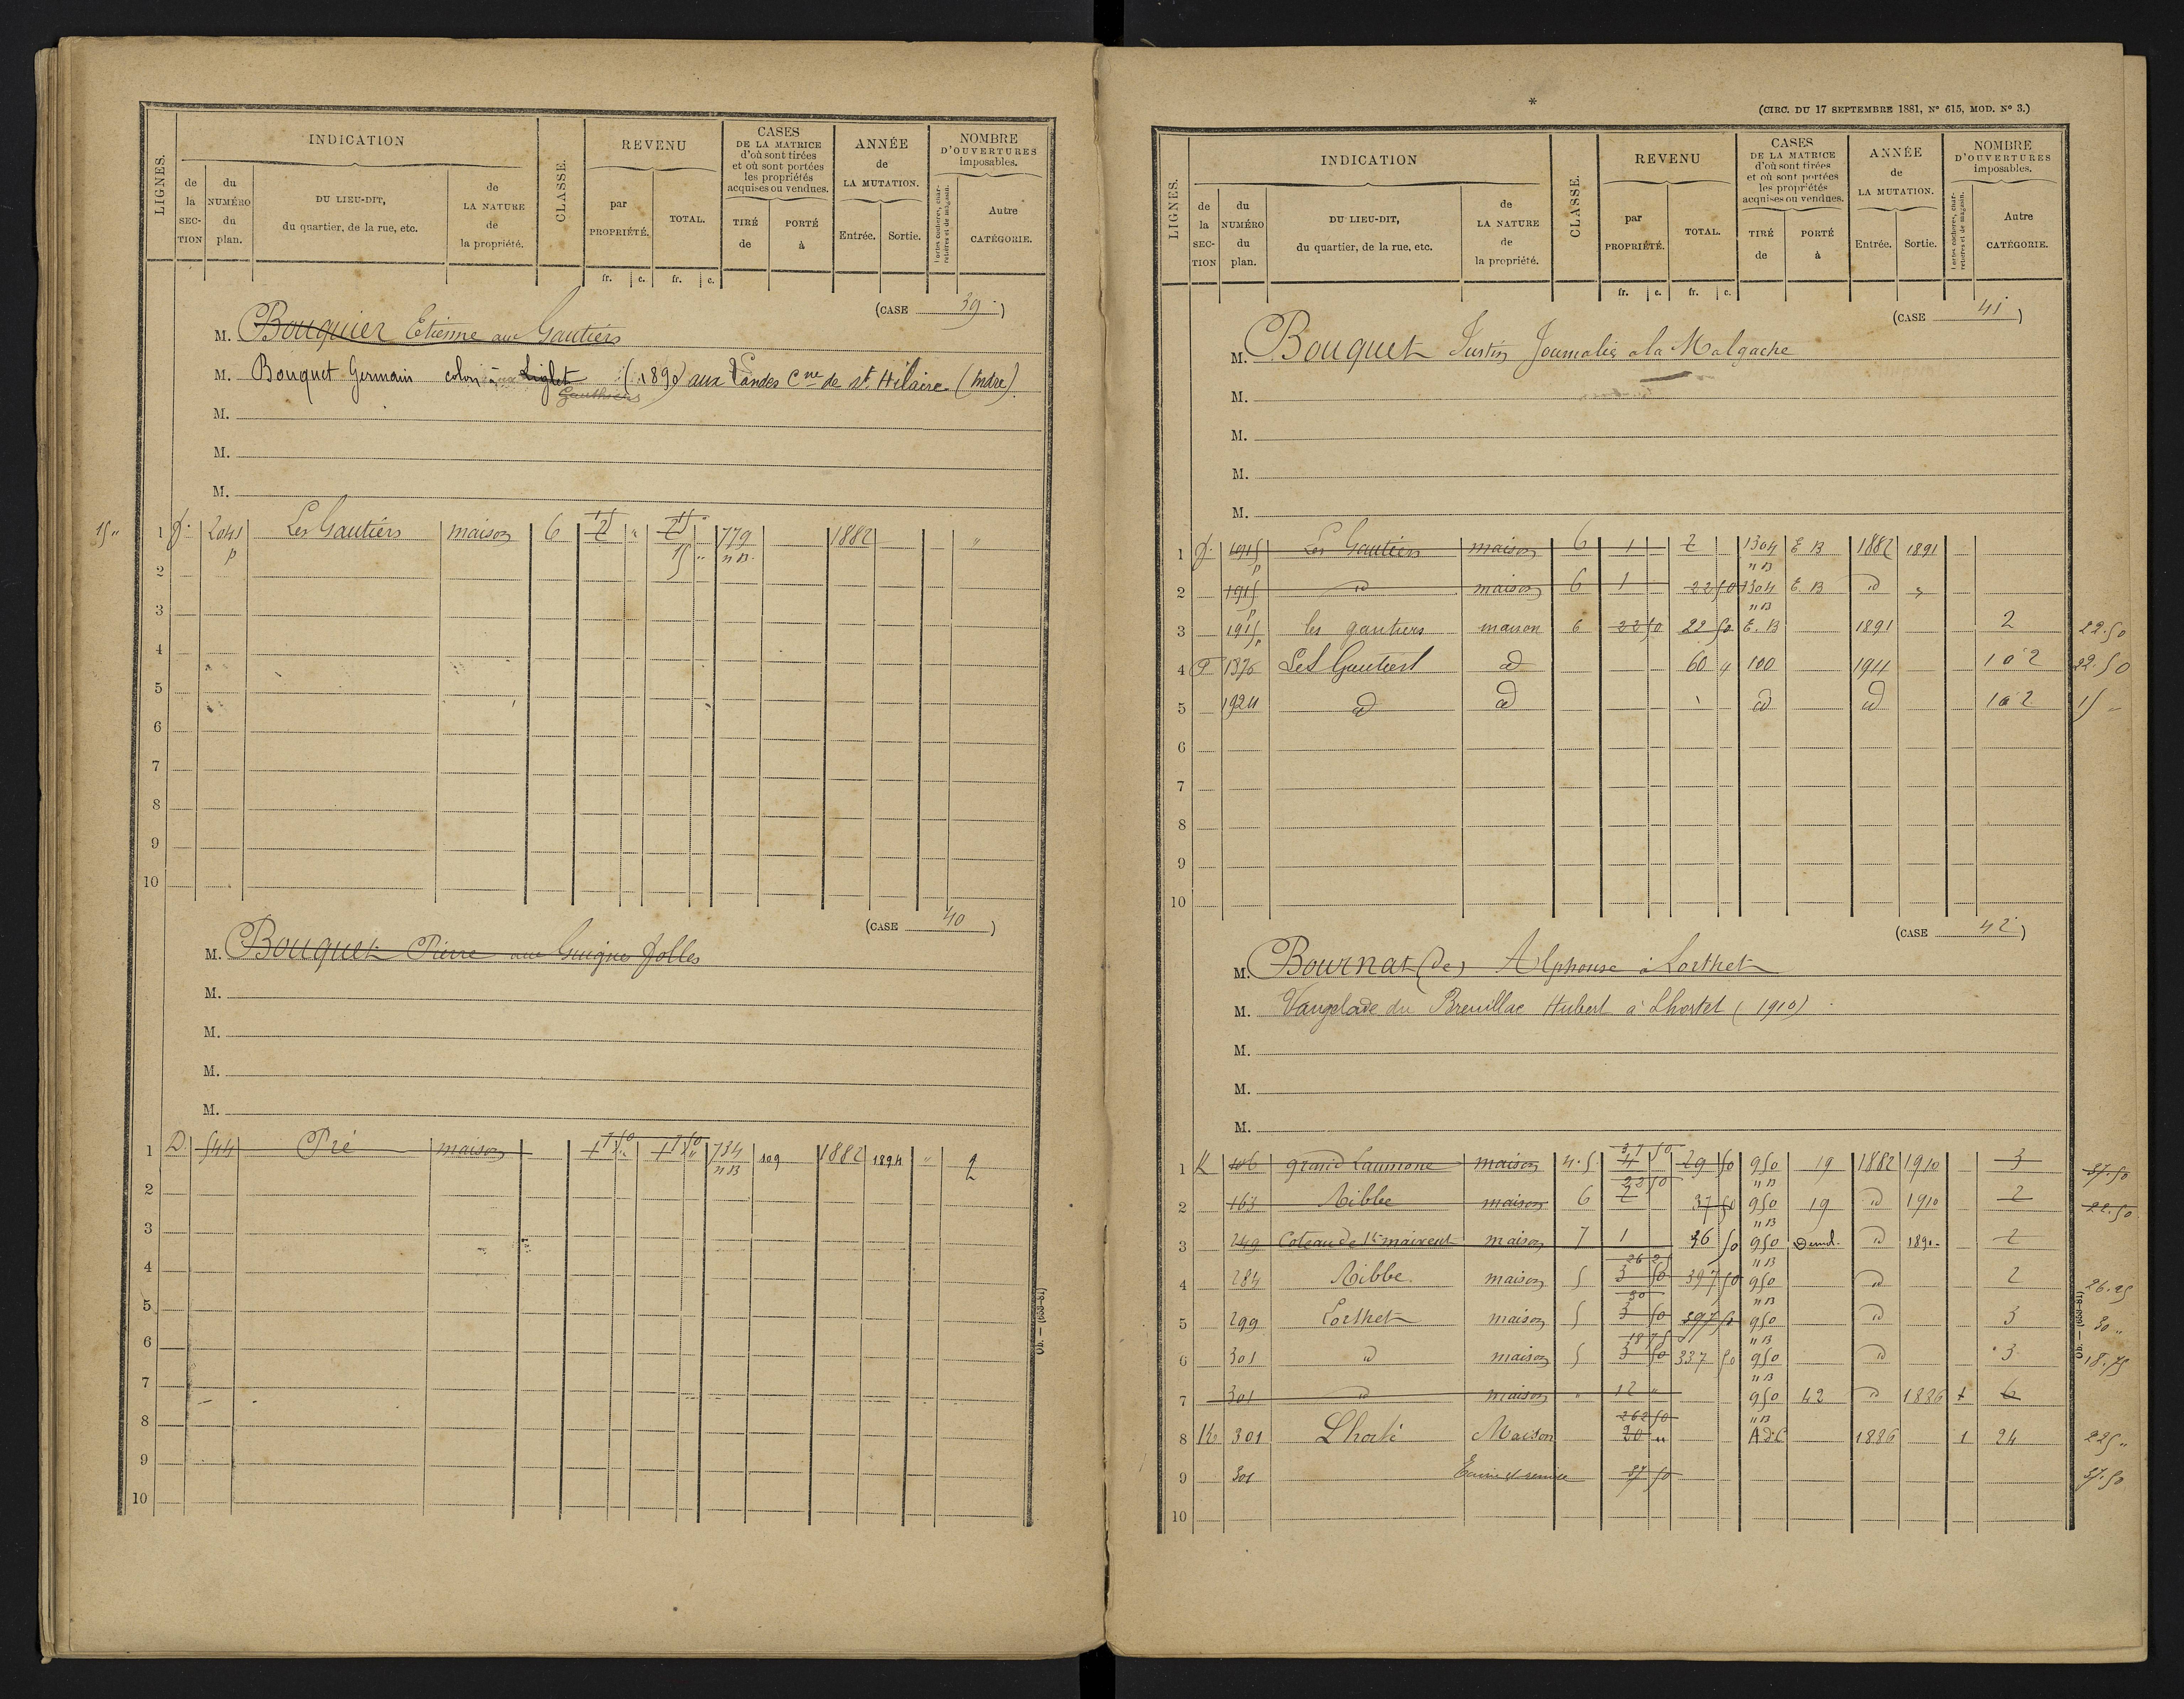 LIGNES.
INDICATION
de la SECTION
du NUMÉRO du plan.
DU LIEU-DIT, du quartier, de la rue, etc.
de LA NATURE de la propriété.
CLASSE.
REVENU
par PROPRIÉTÉ.
TOTAL.
fr. c. fr. c.
CASES DE LA MATRICE d'où sont tirées et où sont portées les propriétés acquises ou vendues.
TIRÉ de
PORTÉ à
ANNÉE de LA MUTATION.
Entrée. Sortie.
NOMBRE D'OUVERTURES imposables.
Portes cochères, charretières et de magasin.
Autre CATÉGORIE.
(CASE 39)
M. Bouquier Etienne aux Gautiers
M. Bouquet Germain colon à Liglet (1890) aux Landes Cne de St Hilaire (Indre).
Gauthiers
M.
M.
M.
15 " 1 2041 p Les Gautiers maison 6 2 " 779 1882 "
15 " " B.
2
3
4
5
6
7
8
9
10
(CASE 40)
M. Bouquet Pierre aux Guignes folles
M.
M.
M.
M.
1 D. 544 Pré maison 17 50 17 50 734 " B 109 1882 1894 " 2
2
3
4
5
6
7
8
9
10
Ob. — (653-81)
*
(CIRC. DU 17 SEPTEMBRE 1881, N° 615, MOD. N° 3.)
LIGNES.
INDICATION
de la SECTION
du NUMÉRO du plan.
DU LIEU-DIT, du quartier, de la rue, etc.
de LA NATURE de la propriété.
CLASSE.
REVENU
par PROPRIÉTÉ.
TOTAL.
fr. c. fr. c.
CASES DE LA MATRICE d'où sont tirées et où sont portées les propriétés acquises ou vendues.
TIRÉ de
PORTÉ à
ANNÉE de LA MUTATION.
Entrée. Sortie.
NOMBRE D'OUVERTURES imposables.
Portes cochères, charretières et de magasin.
Autre CATÉGORIE.
(CASE 41)
M. Bouquet Justin Journalier a la Malgache
M.
M.
M.
M.
1 1915 p Les Gautiers maison 6 1 2 1304 " B E B 1882 1891
2 1915 p id maison 6 1 22 50 1304 " B E. B id "
3 1915 p les gautiers maison 6 22 50 22 50 E. B 1891 2 22.50
4 F 1376 Les Gautiers id 60 " 100 1911 1 o 2 22.50
5 1924 id id id id 1 o 2 15 "
6
7
8
9
10
(CASE 42)
M. Bournat (de) Alphonse à Lorthet
M. Vaugelade du Breuillac Hubert à Lhortet (1910)
M.
M.
M.
1 K 106 grand Laumone maison 4.5. 37 50 4 29 50 950 " B 19 1882 1910 3 37.50
2 163 Ribbe maison 6 22 50 2 37 50 950 " B 19 id 1910 2 22.50
3 249 Coteau de St maixent maison 7 1 36 50 950 " B Demol. id 1890 2
4 284 Ribbe maison 5 26 25 3 50 397 50 950 " B id 2 26.25
5 299 Lorthet maison 5 30 3 50 397 50 950 " B id 3 30 "
6 301 id maison 5 18 75 3 50 337 50 950 " B id 3 18.75
7 301 id maison " 12 " 950 " B 42 id 1886 1 6
8 K 301 Maison 262 50 20 " 1886 1 24 225 "
9 301 Ecurie et remise 37 50 37.50
10
Ob. — (653-81)